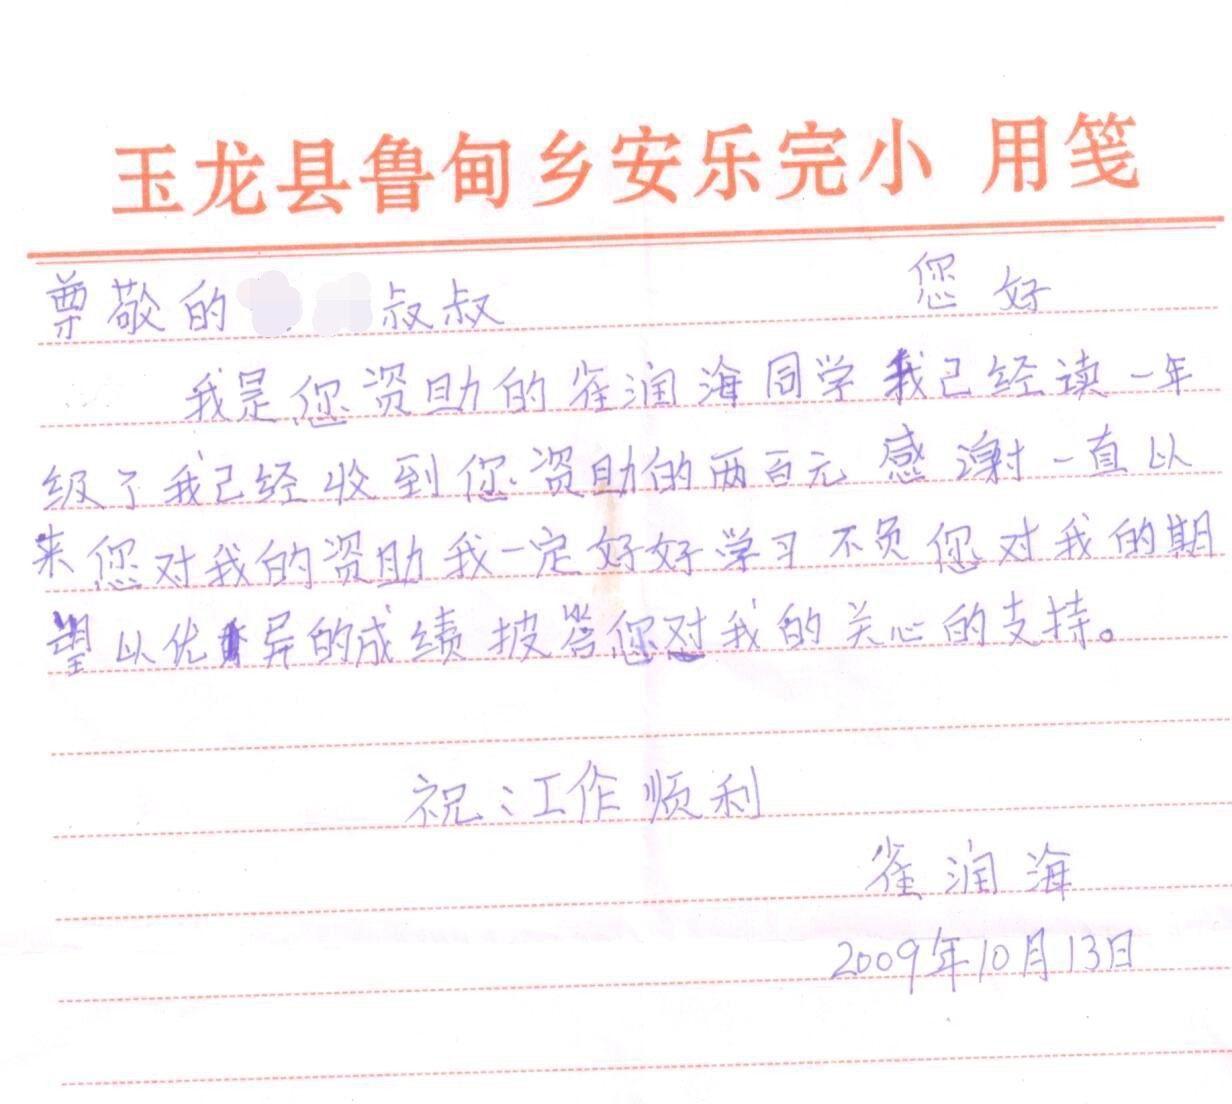 玉龙县鲁甸乡安乐完小 用笺
尊敬的 叔叔 您好
我是您资助的雀润海同学我已经读一年
级了我已经收到您资助的两百元感谢一直以
来您对我的资助我一定好好学习不负您对我的期
望以优异的成绩披答您对我的关心的支持。
祝:工作顺利
雀润海
2009年10月13日